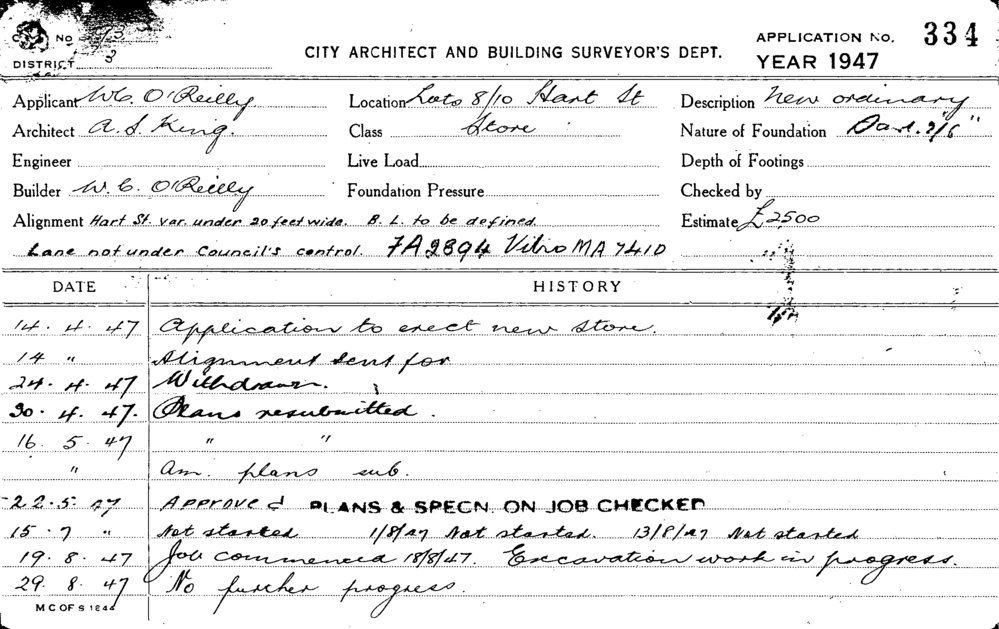 No 93
DISTRICT 3
CITY ARCHITECT AND BUILDING SURVEYOR'S DEPT.
APPLICATION No. 334
YEAR 1947
Applicant W.C. O'Reilly. Location Lots 8/10 Hart St Description New ordinary
Architect A. S. King. Class Store Nature of Foundation
Engineer Live Load Depth of Footings
Builder W. C. O'Reilly Foundation Pressure Checked by
Alignment Hart St. var. under 20 feet wide. B. L. to be defined. Estimate £2500
Lane not under Council's control. FA2894 Vibro MA7410
DATE HISTORY
14. 4. 47 Application to erect new store.
14 " Alignment sent for
24. 4. 47 Withdrawn.
30. 4. 47. Plans resubmitted.
16. 5. 47 " "
" Am. plans sub.
22. 5. 47 Approved PLANS & SPECN. ON JOB CHECKED
15. 7 " Not started 1/8/47 Not started. 13/8/47 Not started
19. 8. 47 Job commenced 18/8/47. Excavation work in progress.
29. 8. 47 No further progress.
M C OF S 1844